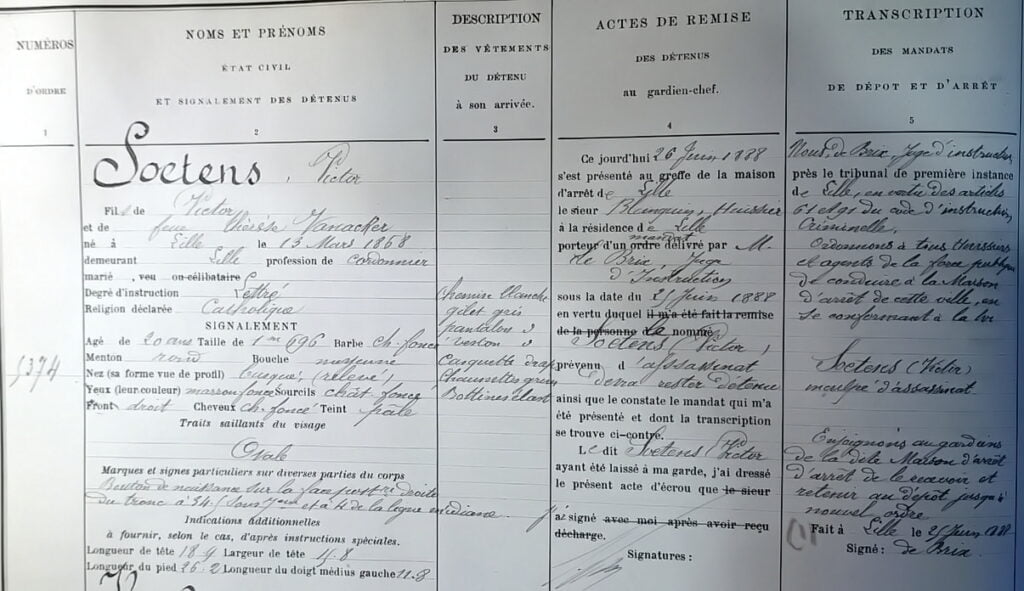 NUMÉROS
D'ORDRE
1
NOMS ET PRÉNOMS
ÉTAT CIVIL
ET SIGNALEMENT DES DÉTENUS
2
DESCRIPTION
DES VÊTEMENTS
DU DÉTENU
à son arrivée.
3
ACTES DE REMISE
DES DÉTENUS
au gardien-chef.
4
TRANSCRIPTION
DES MANDATS
DE DÉPOT ET D'ARRÊT
5
5374
Soetens, Victor
Fils de Victor
et de feue Thérèse Vanacker
né à Lille le 13 Mars 1868
demeurant Lille profession de cordonnier
marié, veu ou célibataire
Degré d'instruction Lettré
Religion déclarée Catholique
SIGNALEMENT
Agé de 20 ans Taille de 1m 696 Barbe ch. foncé
Menton rond Bouche moyenne
Nez (sa forme vue de profil) busqué, (relevé)
Yeux (leur couleur) marron foncé Sourcils chat. foncé
Front droit Cheveux ch. foncé Teint pâle
Traits saillants du visage
Ovale
Marques et signes particuliers sur diverses parties du corps
Bouton de naissance sur la face post re droite
du tronc à 34 sous 7me et à 4 de la ligne médiane
Indications additionnelles
à fournir, selon le cas, d'après instructions spéciales.
Longueur de tête 18-9 Largeur de tête 14-8
Longueur du pied 26-2 Longueur du doigt médius gauche 11-3
Chemise blanche
gilet gris
pantalon d
veston d
Casquette drap
Chaussettes
Bottines
Ce jourd'hui 26 Juin 1888
s'est présenté au greffe de la maison
d'arrêt de Lille
le sieur Blanquin, Huissier
à la résidence de Lille
porteur d'un ordre mandat délivré par M.
de Brix Juge
d'Instruction
sous la date du 25 Juin 1888
en vertu duquel il m'a été fait la remise
de la personne de le nommé
Soetens (Victor)
prévenu d'assassinat
devra rester détenu
ainsi que le constate le mandat qui m'a
été présenté et dont la transcription
se trouve ci-contre.
Le dit Soetens Victor
ayant été laissé à ma garde, j'ai dressé
le présent acte d'écrou que le sieur
j'ai signé avec moi après avoir reçu
décharge.
Signatures :
Nous, de Brix, Juge d'instruction
près le tribunal de première instance
de Lille, en vertu des articles
61 et 91 du code d'instruction
Criminelle,
ordonnons à tous Huissiers
et agents de la force publique
de conduire à la Maison
d'arrêt de cette ville, en
se conformant à la loi
Soetens (Victor)
inculpé d'assassinat.
Enjoignons au gardien
de la dite Maison d'arrêt
d'arrêt de le recevoir et
retenir au dépôt jusqu'à
nouvel ordre
Fait à Lille le 25 Juin 1888
Signé : de Brix.